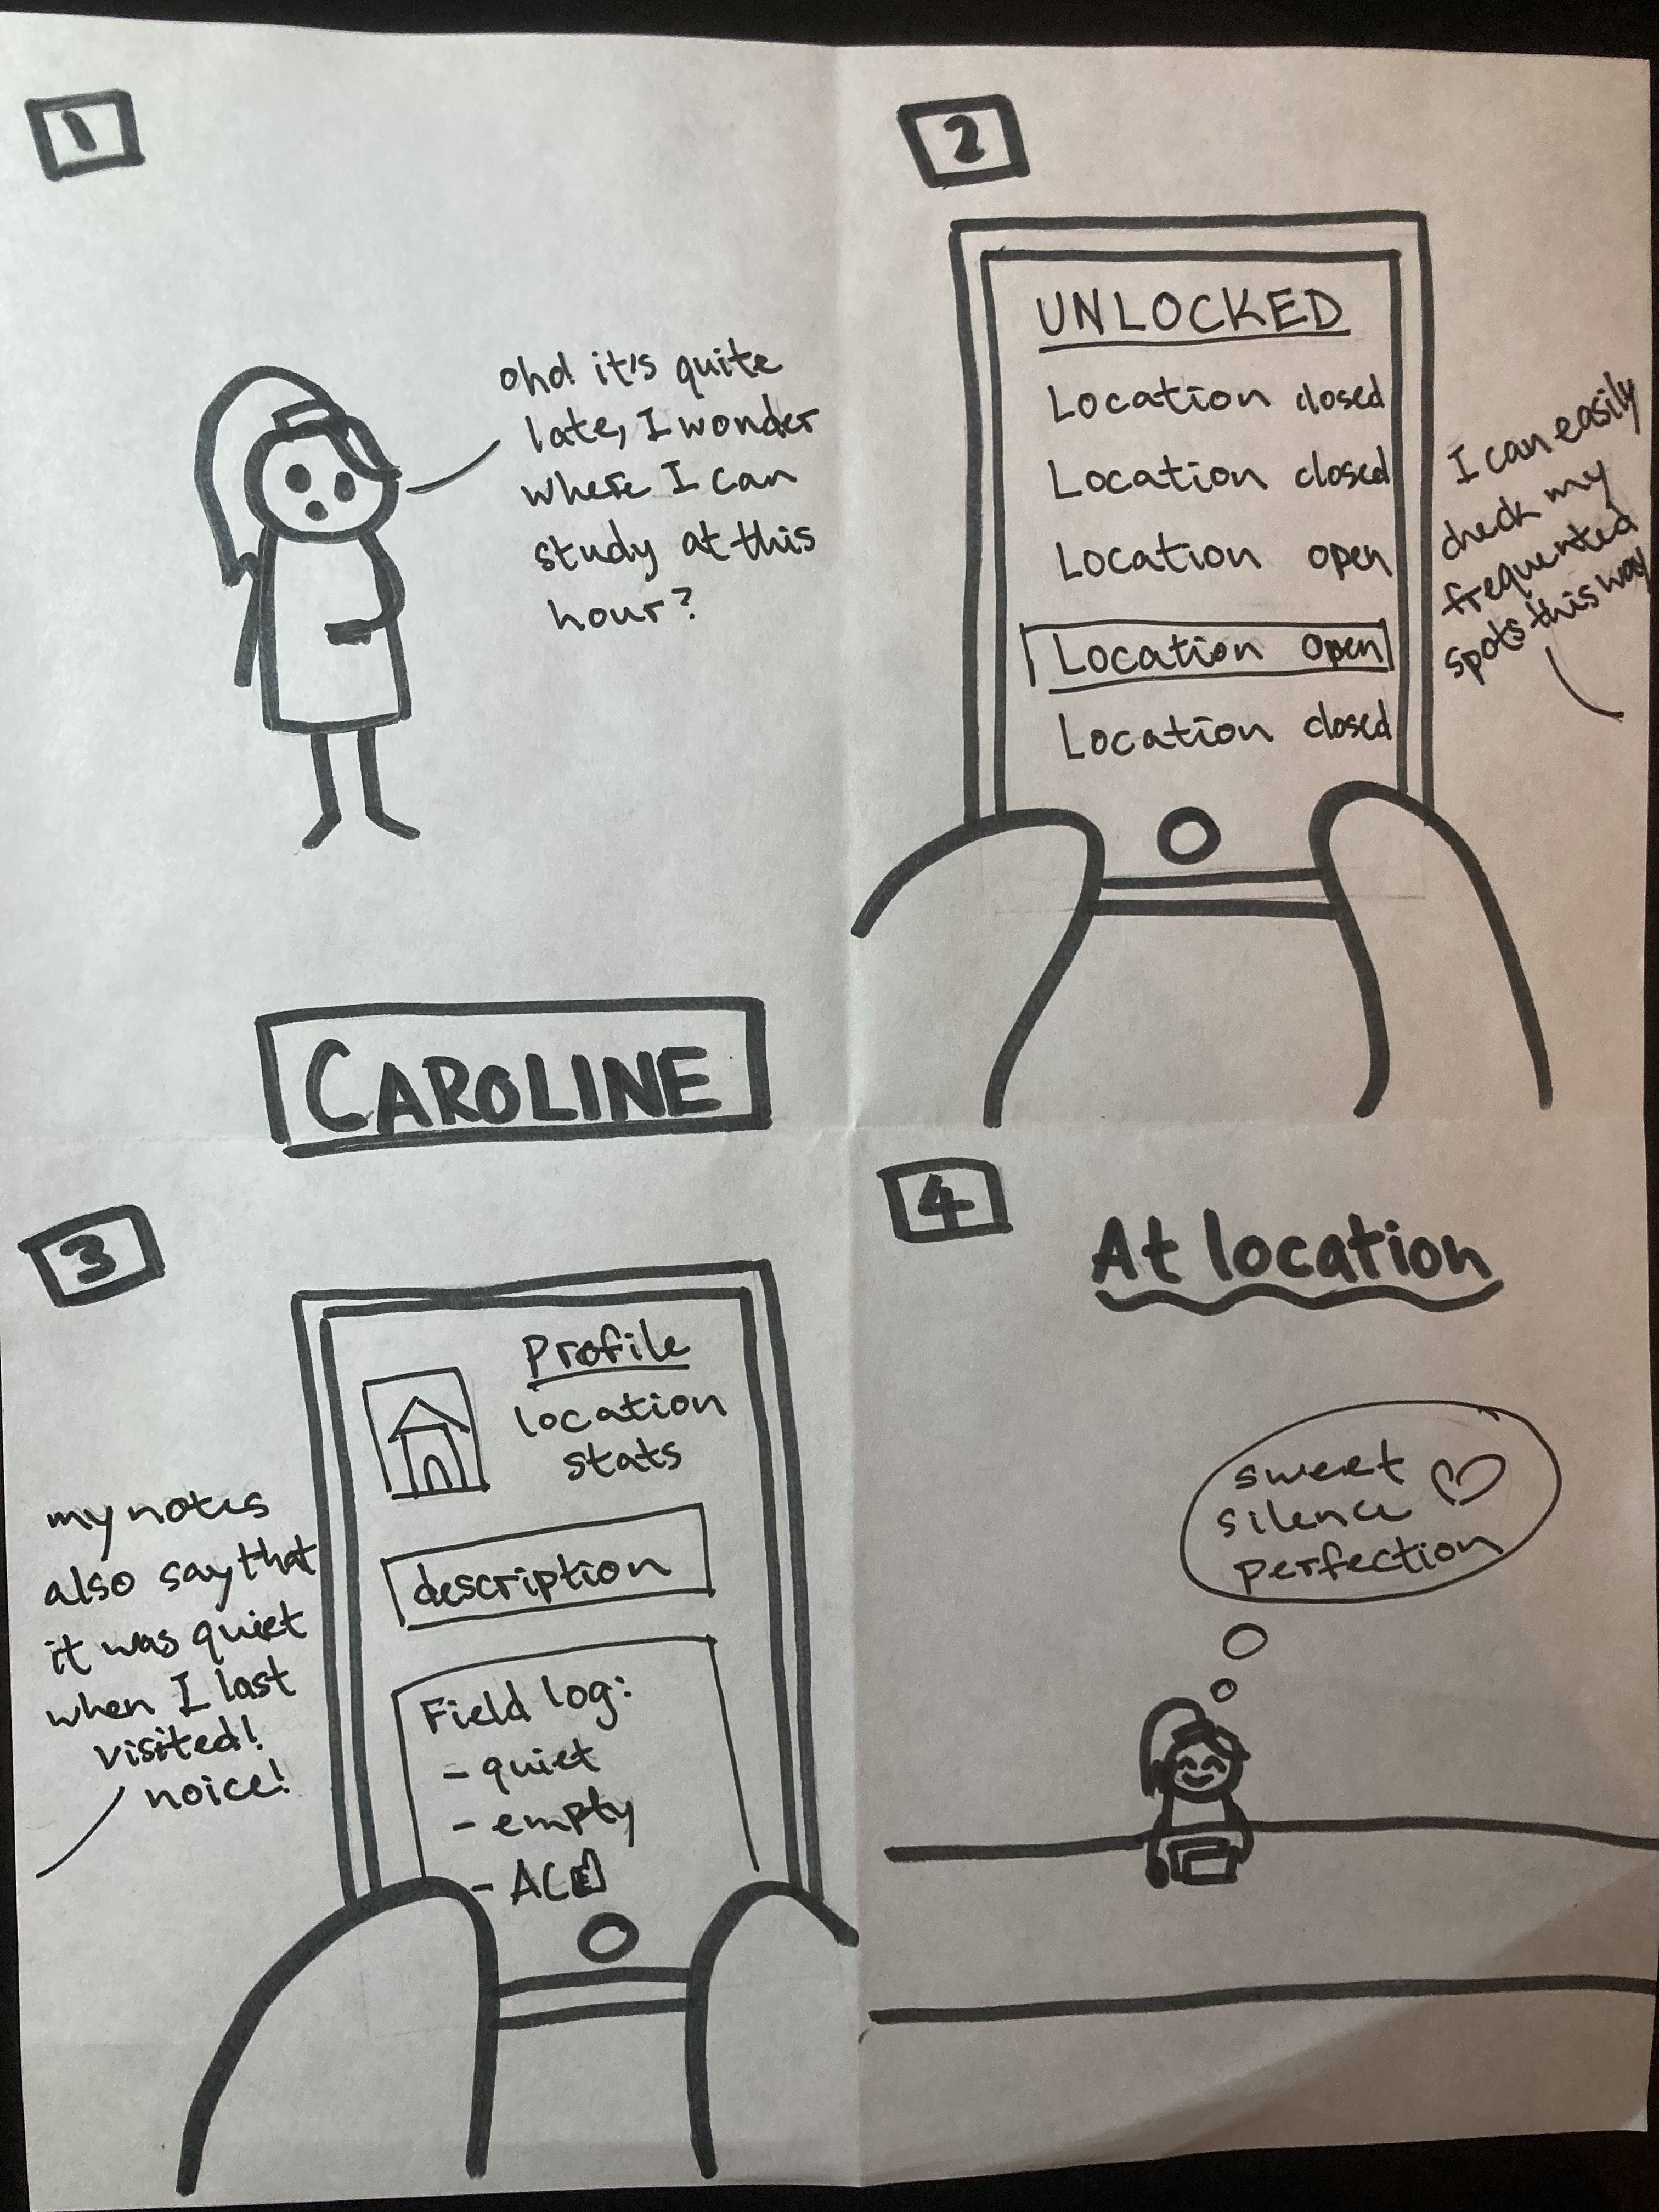 1
ohd! it's quite
late, I wonder
where I can
study at this
hour?
CAROLINE
2
UNLOCKED
Location closed
Location closed
Location open
Location open
Location closed
I can easily
check my
frequented
spots this way
3
Profile
location
stats
description
Field log:
- quiet
- empty
- AC
my notes
also say that
it was quiet
when I last
visited!
noice!
4
At location
sweet
silence
perfection